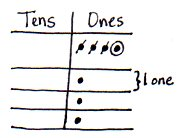 Tens Ones
} 1 one